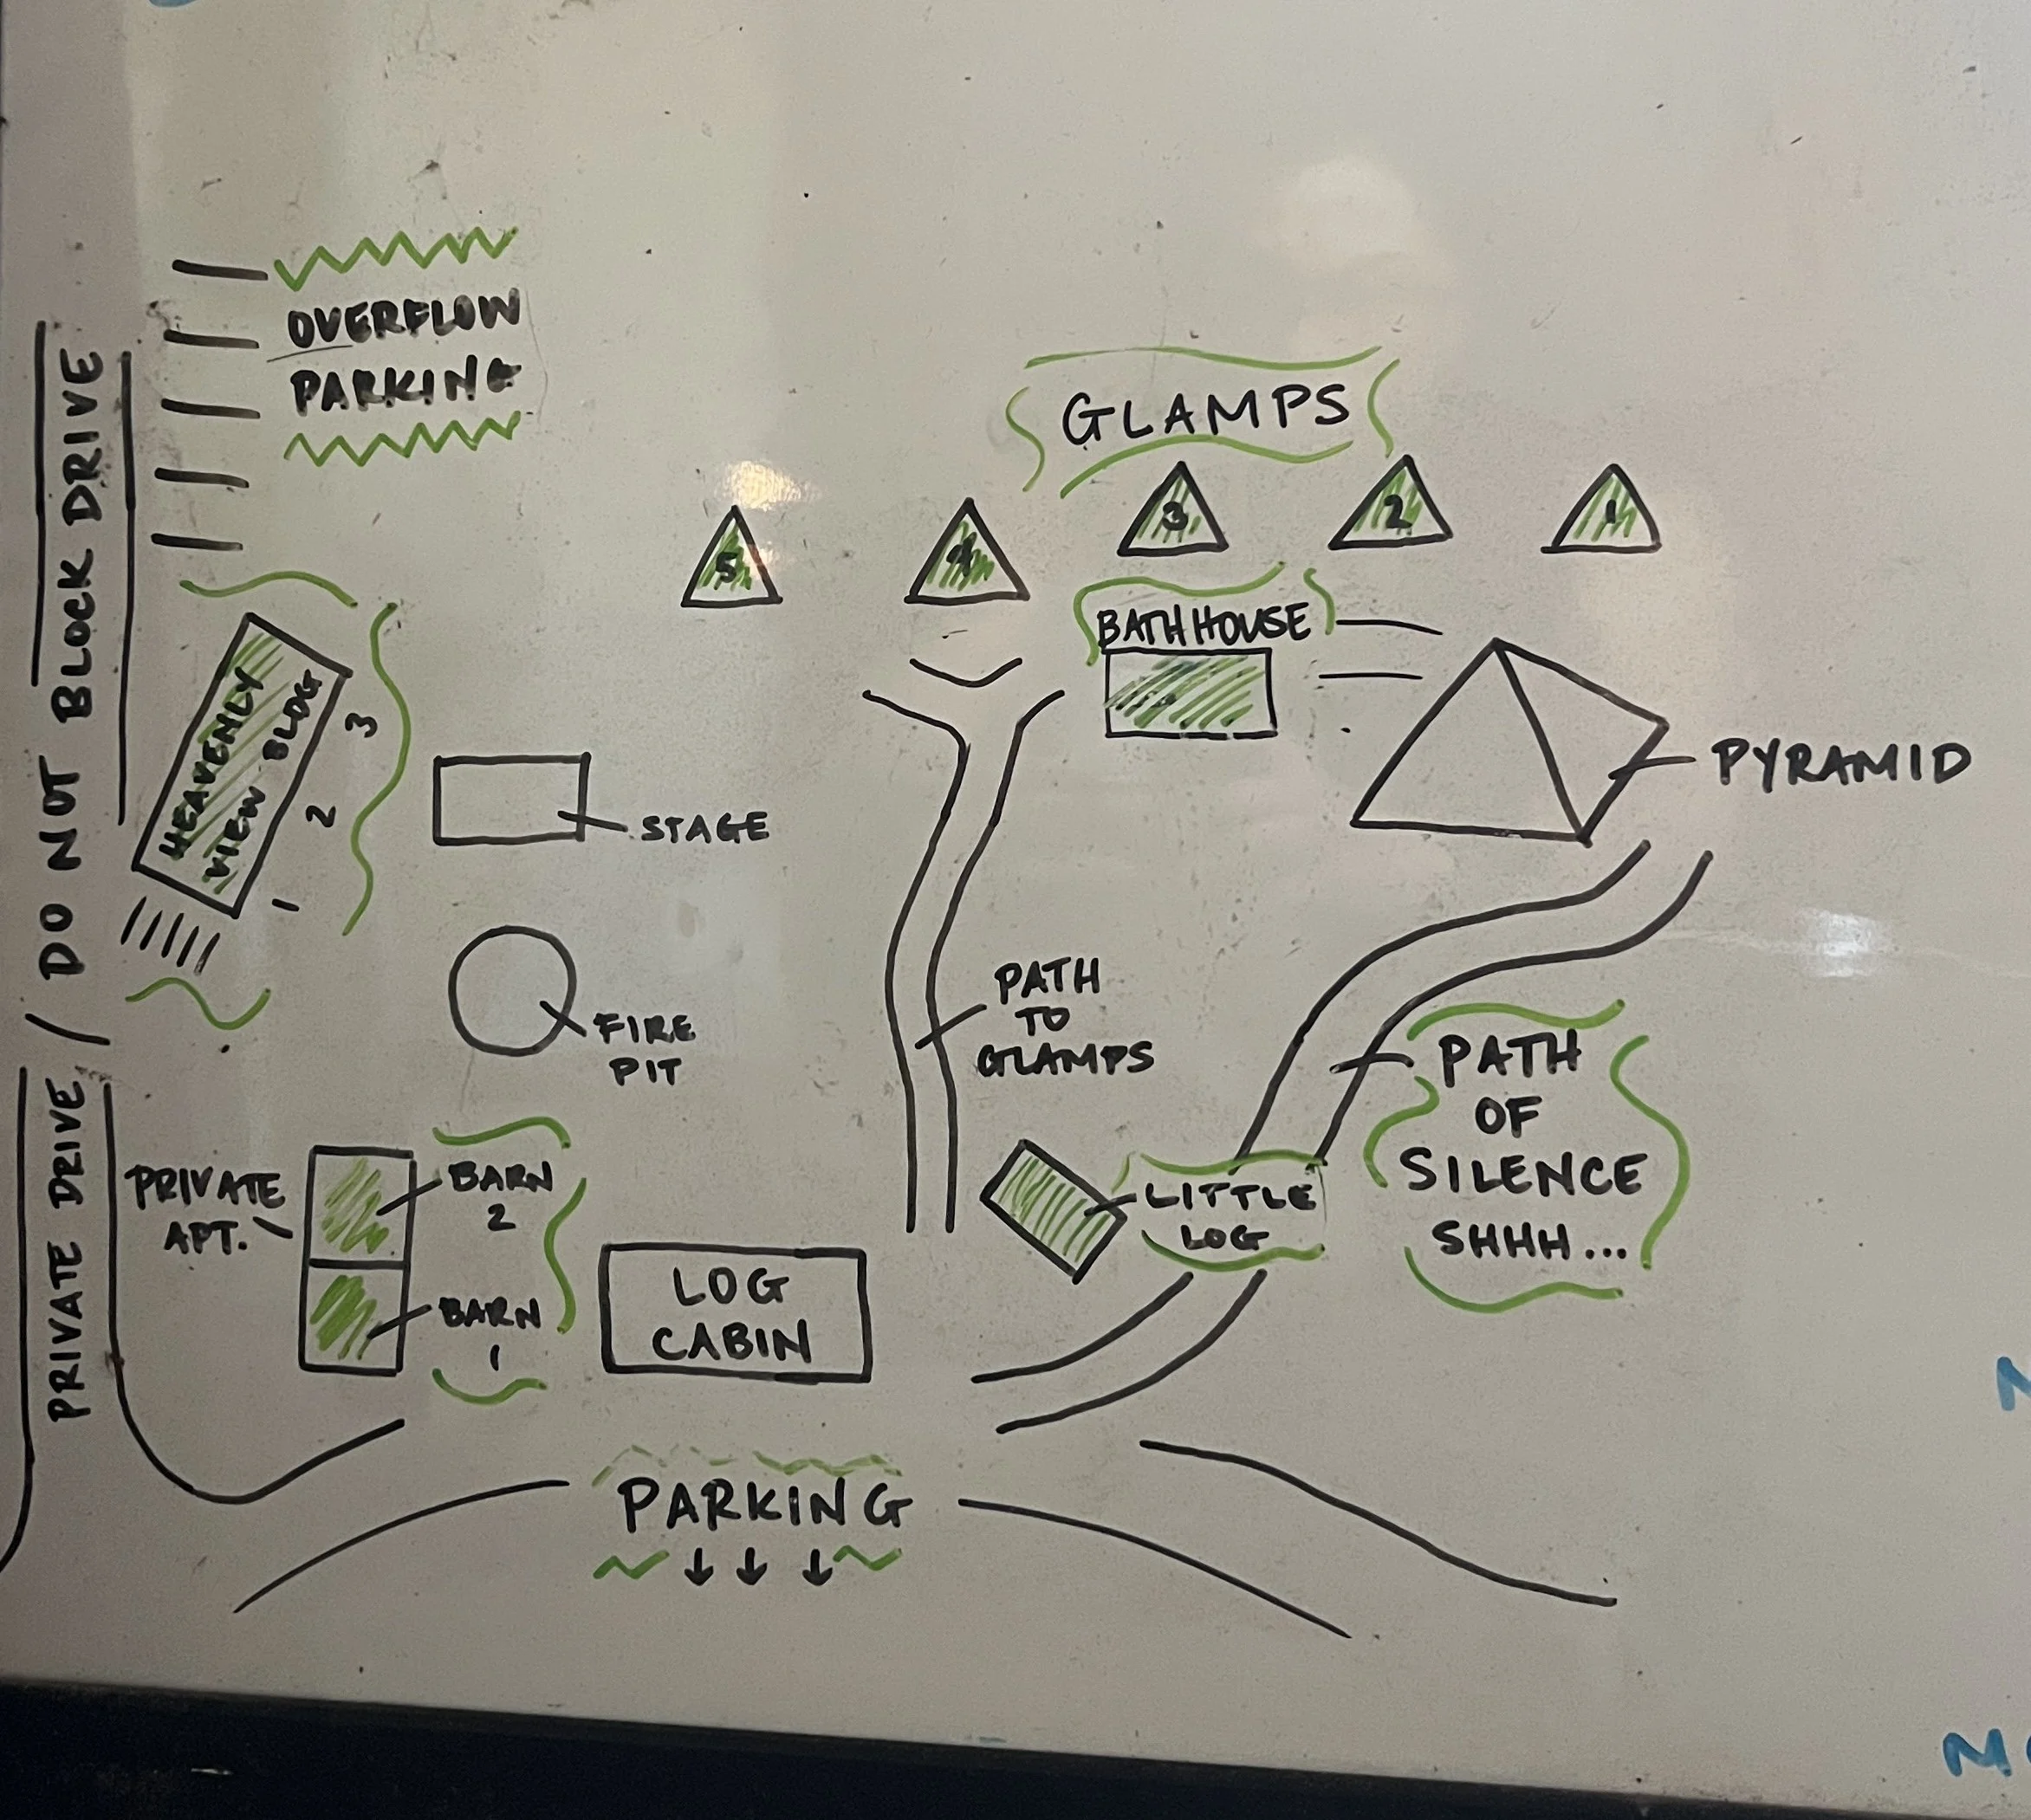 OVERFLOW
PARKING
PRIVATE DRIVE / DO NOT BLOCK DRIVE
GLAMPS
5
4
3
2
1
BATHHOUSE
PYRAMID
HEAVENLY
VIEW BLDG
3
2
1
STAGE
FIRE
PIT
PATH
TO
GLAMPS
PATH
OF
SILENCE
SHHH...
LITTLE
LOG
PRIVATE
APT.
BARN
2
BARN
1
LOG
CABIN
PARKING